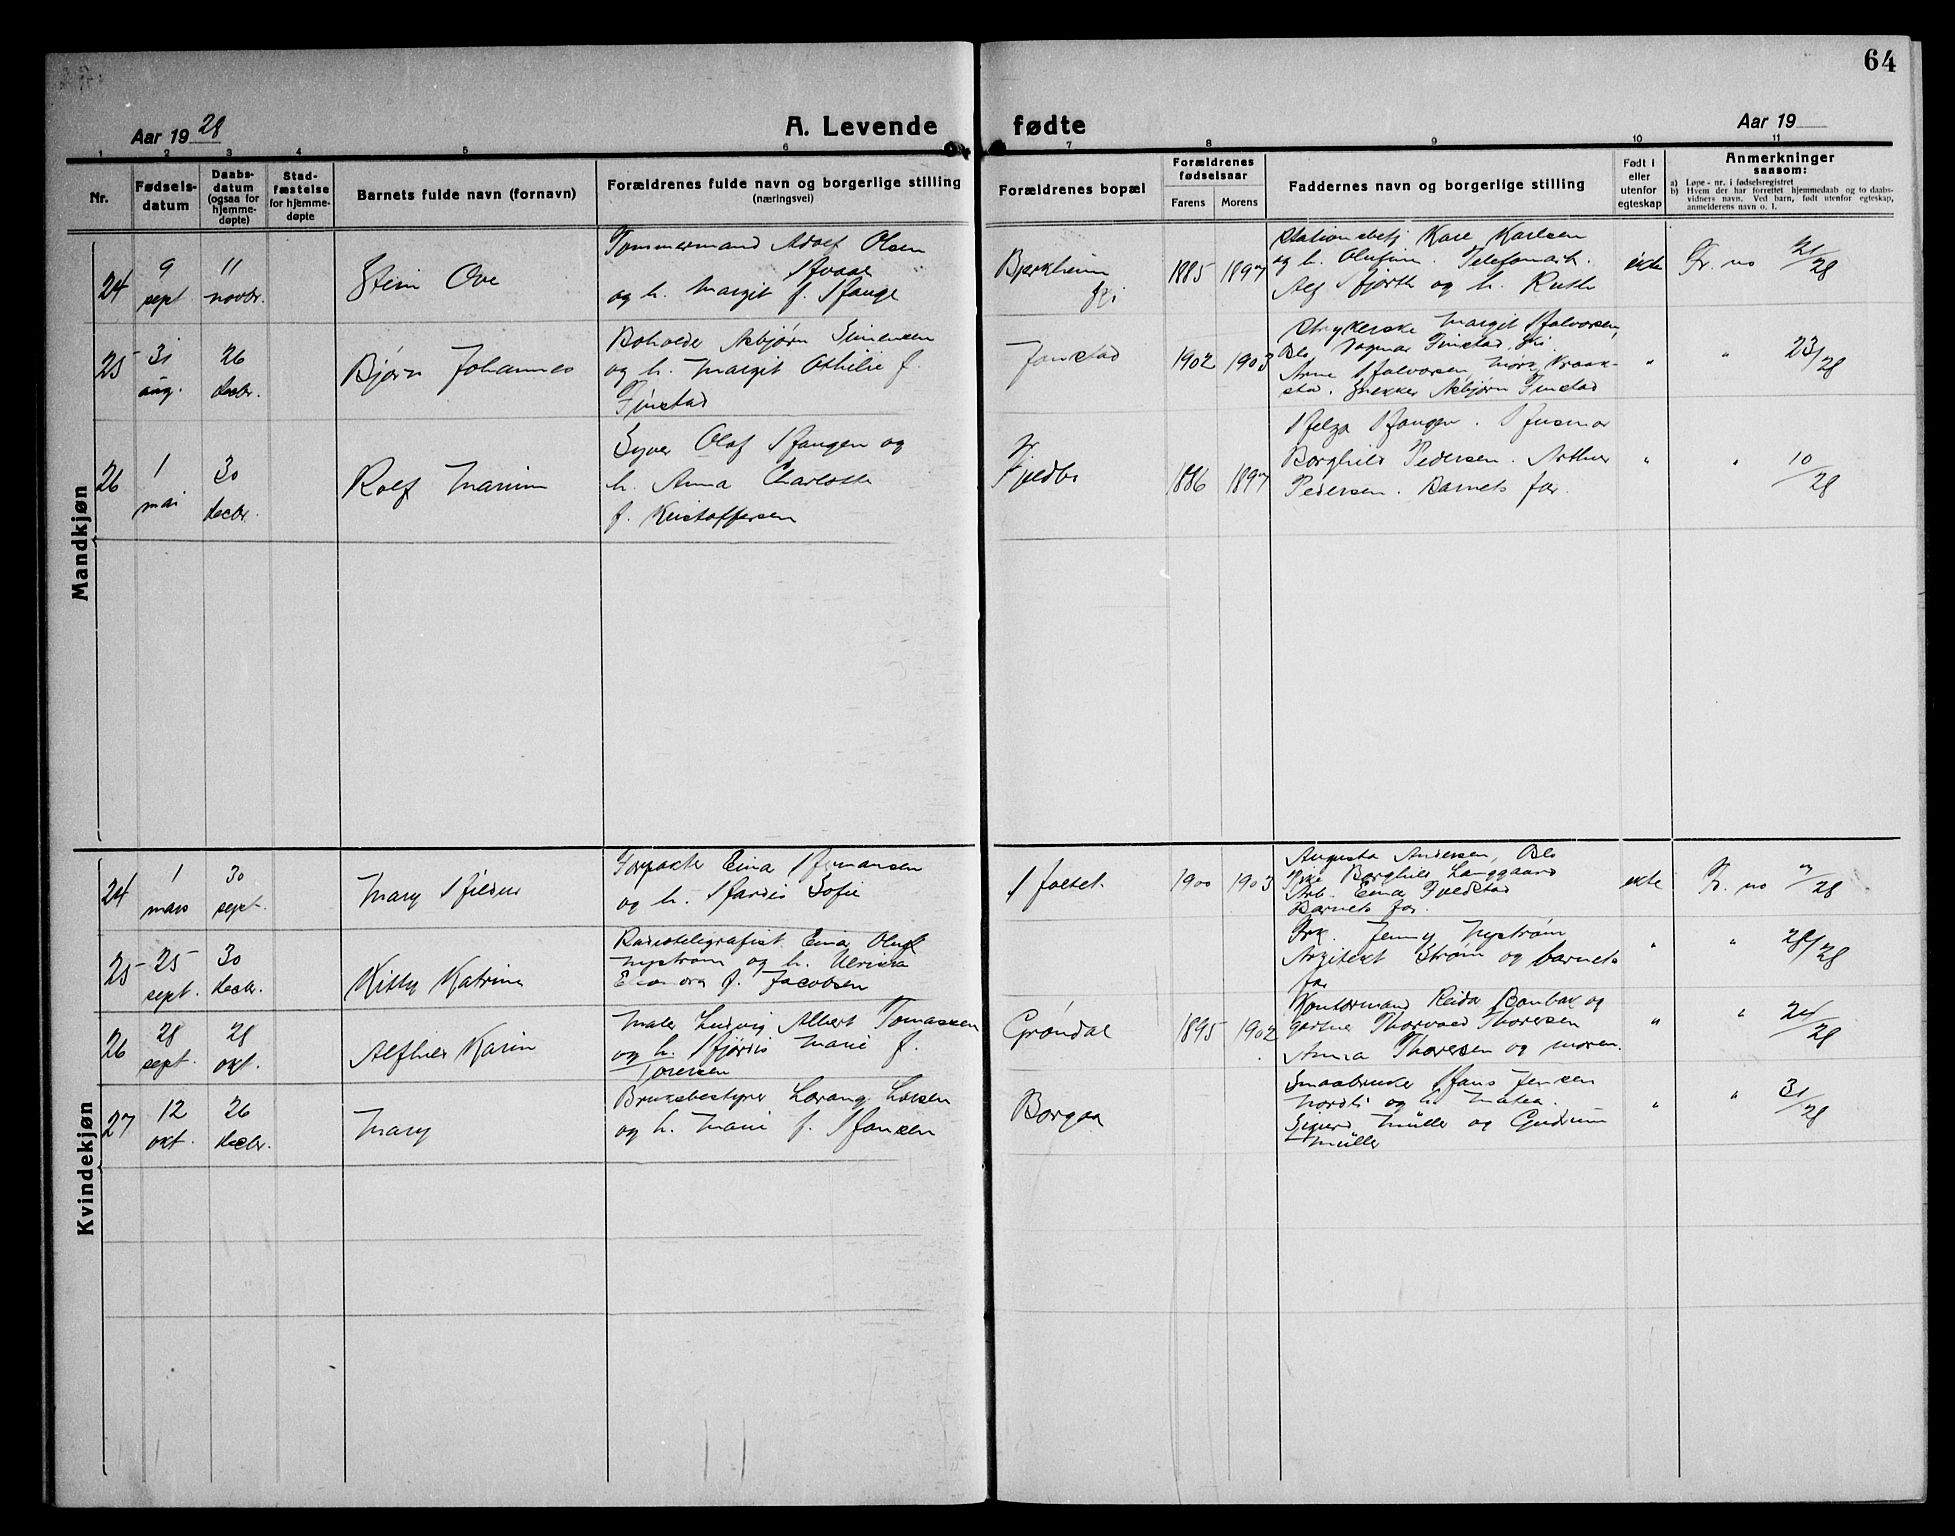 64
Aar 19 28
A. Levende fødte
Aar 19
1 2 3 4 5 6 7 8 9 10 11
Nr.
Fødsels-
datum
Daabs-
datum
(ogsaa for
hjemme-
døpte)
Stad-
fæstelse
for hjemme-
døpte
Barnets fulde navn (fornavn)
Forældrenes fulde navn og borgerlige stilling
(næringsvei)
Forældrenes bopæl
Forældrenes
fødselsaar
Farens Morens
Faddernes navn og borgerlige stilling
Født i
eller
utenfor
egteskap
Anmerkninger
saasom:
a) Løpe-nr. i fødselsregistret
b) Hvem der har forrettet hjemmedaab og to daabs-
vidners navn. Ved barn, født utenfor egteskap,
anmelderens navn o. l.
Mandkjøn
24
9
sept
11
novbr.
Stein Ove
Tømmermand Adolf Olsen
og h. Margit f. Hauge
Bjerkheim
Ski
1885 1897
Stationsbetj Kare Karlsen
og h. Olufine. Telefonarb.
Alf Hjorth og h. Ruth
ekte
Fr. no 21/28
25
31
aug.
26
decbr.
Bjørn Johannes
Asbjørn Simensen
og h. Margit Othilie f.
Finstad
1902 1903
Strykerske Margit Halvorsen,
Dagmar Finstad, Ski
Arne Halvorsen, Kraak-
stad. Snekker Asbjørn Finstad
"
" 23/28
26
1
mai
30
decbr.
Rolf Marim
Syver Olaf Haugen og
h. Anna Charlotte
f. Kristoffersen
Fjeldbo
1886 1897
Helga Haugen. Husmor
Borghild Pedersen. Arthur
Pedersen. Barnets far.
"
" 10/28
Kvindekjøn
24
1
mars
30
sept.
Mary Hildur
Forpakter Einar Hermansen
og h. Hardis Sofie
Holtet.
1900 1903
Augusta Andersen, Oslo
Frk. Borghild Langgaard
Arb. Einar Kvedstad
Barnets far.
ekte
Fr. no 7/28
25
25
sept.
30
decbr.
Kitty Katrine
Radiotelegrafist Einar Oluf
Nystrøm og h. Ulrikka
Eleonora f. Jacobsen
Frk. Jenny Nystrøm
Arkitekt Strøm og barnets
far
"
" 28/28
26
28
sept.
28
okt.
Alfhild Karin
Maler Ludvig Albert Tomassen
og h. Hjørdis Marie f.
Toresen
Grøndal
1895 1902
Kontormand Reidar Bonbak og
gartner Thorvald Thoresen
Anna Thoresen og moren.
"
" 24/28
27
12
okt.
26
decbr.
Mary
Bruksbestyrer Lorang Larsen
og h. Marie f. Hansen
Borgen
Smaabruker Hans Jensen
Nordli og h. Matea.
Sigurd Müller og Gudrun
Müller
"
" 31/28